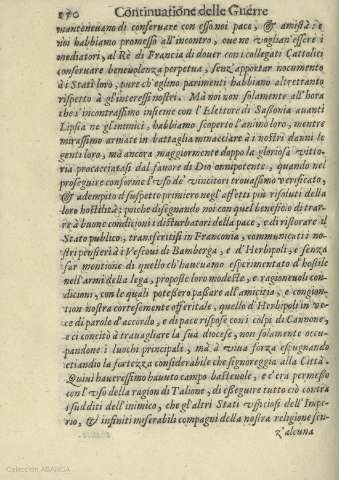 170 Continuatione delle Guerre
manteneuano di conseruare con esso noi pace, & amistà: e
noi habbiamo promesso all'incontro, oue ne voghan'essere i
mediatori, al Rè di Francia di douer con i collegati Cattolici
conseruare beneuolenza perpetua, senz'apportar nocumento
à i Stati loro, pure ch'eglino parimenti habbiano altrettanto
rispetto à gl'interessi nostri. Mà noi non solamente all'hora
che s'incontrassimo insieme con l'Elettore di Sassonia auanti
Lipsia ne gl'inimici, habbiamo scoperto l'animo loro, mentre
mirassimo armate in battaglia minacciare à i nostri danni le
genti loro, mà ancora maggiormente doppo la gloriosa vitto-
ria procacciatasi dal fauore di Dio onnipotente, quando nel
proseguire conforme l'vso de' vincitori trouassimo verificato,
& adempito il sospetto primiero negl'affetti più risoluti della
loro hostilità: poiche disegnando noi con quel beneficio di trar-
re à buone condicioni i disturbatori della pace, e di ristorare il
Stato publico, transferitisi in Franconia, communicati i no-
stri pensieri à i Vescoui di Bamberga, e d'Herbipoli, e senza
far mentione di quello ch'haueuamo esperimentato d'hostile
nell'armi della lega, propose loro modeste, e ragioneuoli con-
dicioni, con le quali potessero passare all'amicitia, e congion-
tion nostra cortesemente offeritale, quello d'Herbipoli in ve-
ce di parole d'accordo, e di pace rispose con i colpi di Cannone,
e ci concitò à trauagliare la sua diocese, non solamente occu-
pandone i luochi principali, mà à viua forza espugnando
etiandio la fortezza considerabile che signoreggia alla Città.
Quiui haueressimo hauuto campo basteuole, e c'era permesso
con l'vso della ragion di Talione, di essèguire tutto ciò contra
i sudditi dell'inimico, che gl'altri Stati vfficiosi dell'Impe-
rio, & infiniti miserabili compagni della nostra religione sen-
z'alcuna
Colección ABANCA